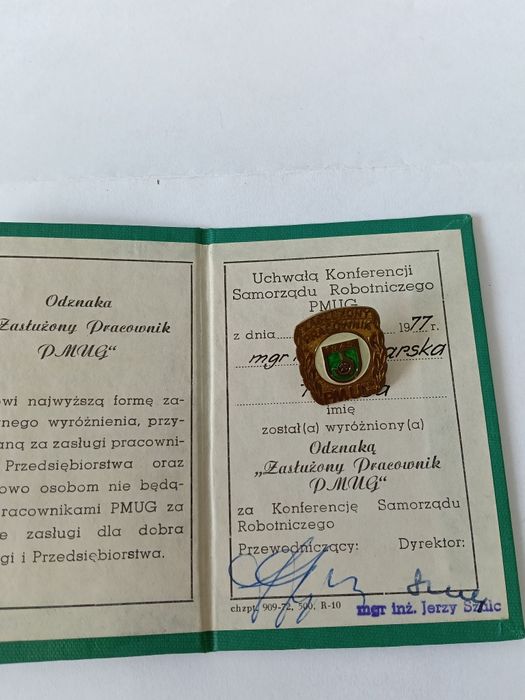 Odznaka
Zasłużony Pracownik
PMUG"
owi najwyższą formę za-
wnego wyróżnienia, przy-
aną za zasługi pracowni-
Przedsiębiorstwa oraz
owo osobom nie będą-
racownikami PMUG za
e zasługi dla dobra
gi i Przedsiębiorstwa.
Uchwałą Konferencji
Samorządu Robotniczego
PMUG
z dnia 1977 r.
mgr arska
imię
został(a) wyróżniony(a)
Odznaką
„Zasłużony Pracownik
PMUG"
za Konferencję Samorządu
Robotniczego
Przewodniczący: Dyrektor:
mgr inż. Jerzy
chzpt. 909-72, 500, R-10
PRACOWNIK
PMUG